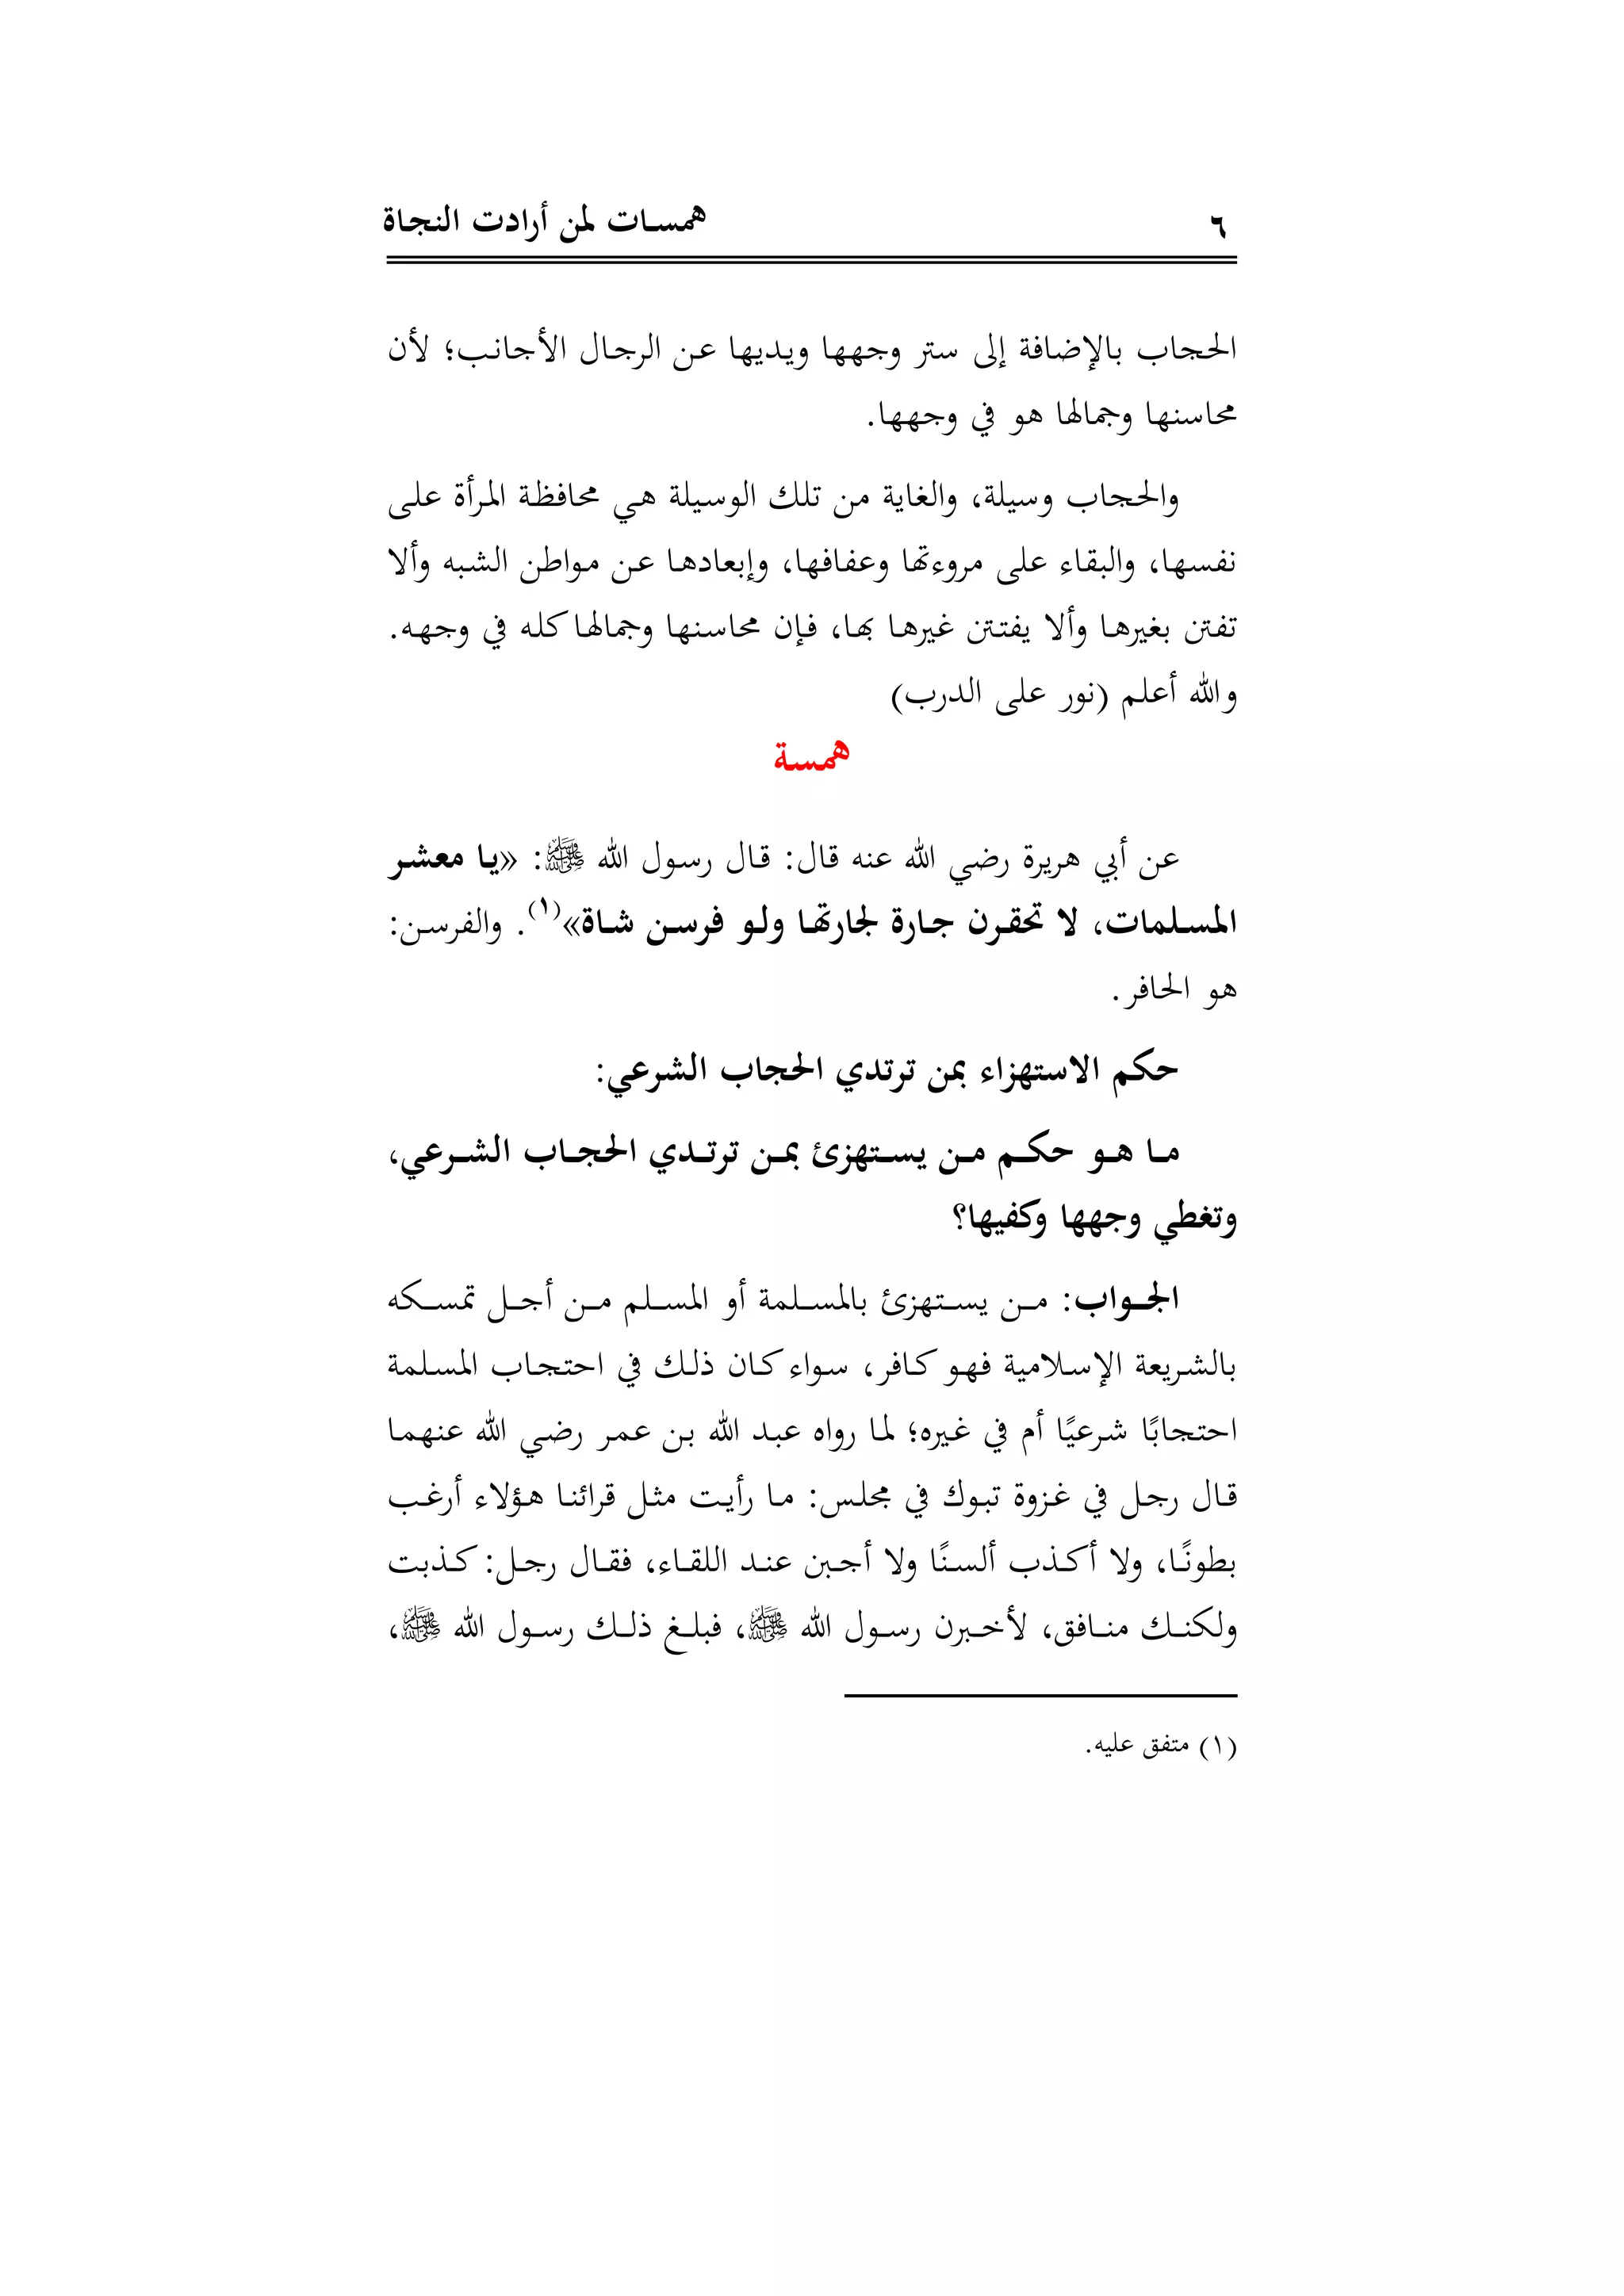 ٦ همسات لمن أرادت النجاة
الحجاب بالإضافة إلى ستر وجهها ويديها عن الرجال الأجانب؛ لأن
محاسنها وجمالها هو في وجهها.
والحجاب وسيلة، والغاية من تلك الوسيلة هي محافظة المرأة على
نفسها، والبقاء على مروءتها وعفافها، وإبعادها عن مواطن الشبه وألا
تفتن بغيرها وألا يفتتن غيرها بها، فإن محاسنها وجمالها كله في وجهه.
والله أعلم (نور على الدرب)
همسة
عن أبي هريرة رضي الله عنه قال: قال رسول الله ﷺ: «يا معشر
المسلمات، لا تحقرن جارة لجارتها ولو فرسن شاة»(١). والفرسن:
هو الحافر.
حكم الاستهزاء بمن ترتدي الحجاب الشرعي:
ما هو حكم من يستهزئ بمن ترتدي الحجاب الشرعي،
وتغطي وجهها وكفيها؟
الجواب: من يستهزئ بالمسلمة أو المسلم من أجل تمسكه
بالشريعة الإسلامية فهو كافر، سواء كان ذلك في احتجاب المسلمة
احتجابًا شرعيًا أم في غيره؛ لما رواه عبد الله بن عمر رضي الله عنهما
قال رجل في غزوة تبوك في مجلس: ما رأيت مثل قرائنا هؤلاء أرغب
بطونًا، ولا أكذب ألسنًا ولا أجبن عند اللقاء، فقال رجل: كذبت
ولكنك منافق، لأخبرن رسول الله ﷺ، فبلغ ذلك رسول الله ﷺ،
(١) متفق عليه.